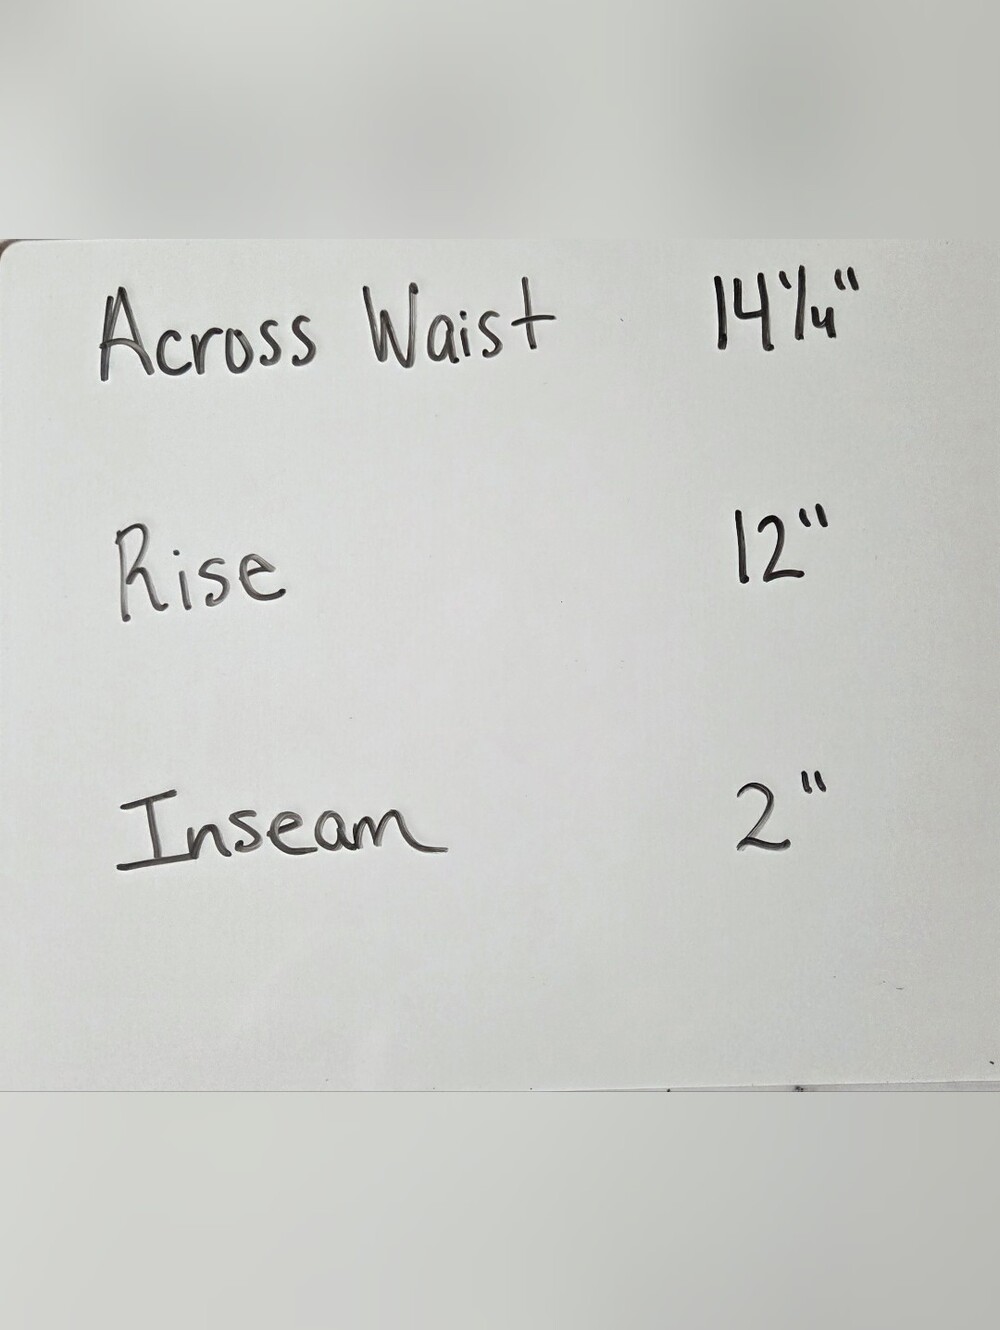 Across Waist 14 1/4"
Rise 12"
Inseam 2"